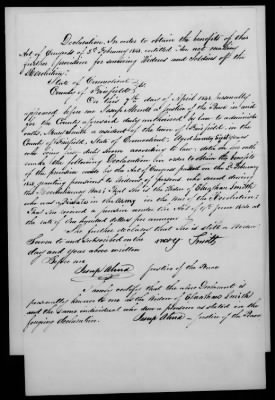 Declaration, In order to obtain the benefits of the
Act of Congress of 3d February 1853, entitled An Act making
further provision for surviving Widows and Soldiers of the
Revolution.
State of Connecticut
County of Fairfield
On this 7th day of April 1853, personally
appeared before me Joseph a Justice of the Peace in and
for the County aforesaid duly authorized by law to administer
oaths, Smith a resident of the town of Fairfield, in the
County of Fairfield, State of Connecticut, aged
years, who, being duly sworn according to law, doth on her oath
make the following Declaration in order to obtain the benefits
of the provision made by the Act of Congress passed on the 3d February
1853 granting pensions to widows of persons who served during
the Revolutionary War; That she is the Widow of Smith
who was a Private in the Army in the War of the Revolution;
That she received a pension under the Act of 17th June 1844 at
the rate of dollars per annum
She further declares that she is still a Widow.
Sworn to and Subscribed on the Smith
day and year above written
Before me
Joseph Justice of the Peace
I hereby certify that the above Declarant is
personally known to me as the Widow of Smith
and the same individual who drew a pension as stated in the
foregoing Declaration.
Joseph Justice of the Peace